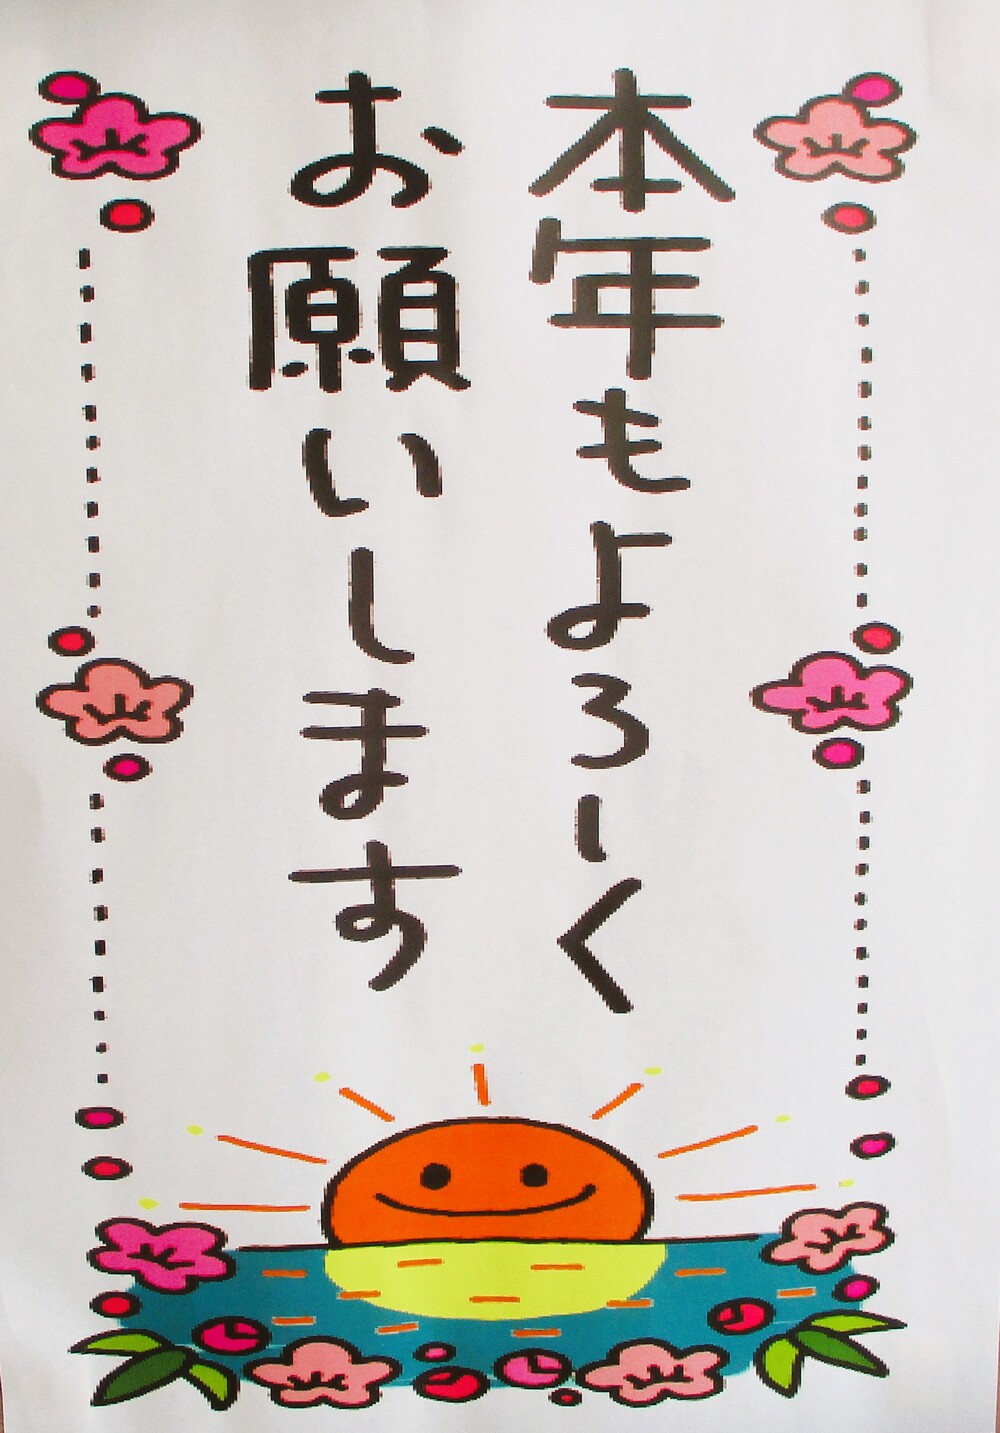 本年もよろーく
お願いします